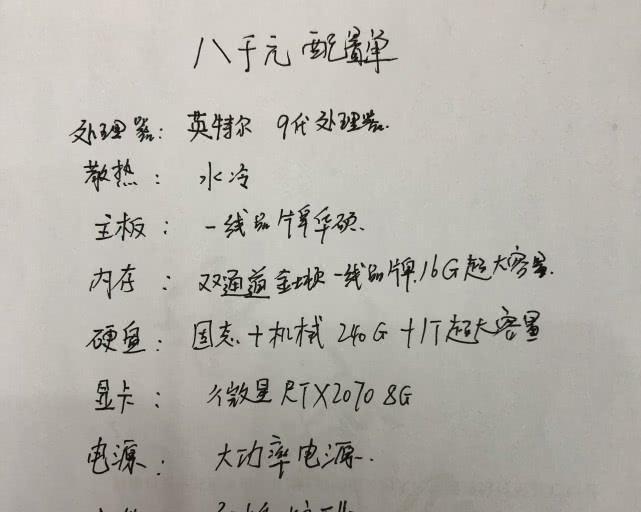 八千元 配置单
处理器: 英特尔 9代处理器.
散热: 水冷
主板: 一线品牌华硕.
内存: 双通道 金士顿 一线品牌.16G超大容量.
硬盘: 固态+机械 240G+1T超大容量
显卡: 微星RTX2070 8G
电源: 大功率电源.